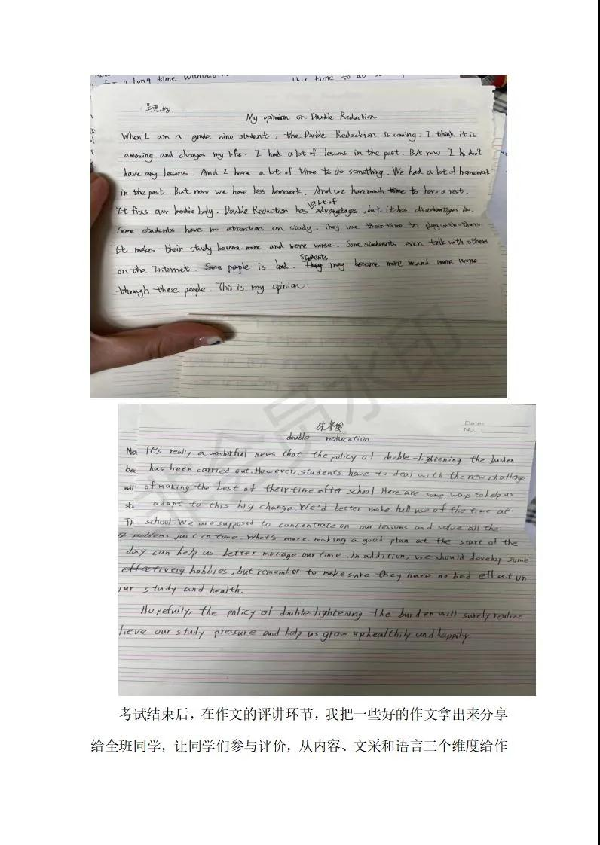 My opinion on Double Reduction
When I am a grade nine students, the Double Reduction is coming. I think it is
amazing and changes my life. I had a lot of lessons in the past. But now I don't
have any lessons. And I have a lot of time to do something. We had a lot of homework
in the past. But now we have less homework. And we have much time to have a rest.
It our bodies Double Reduction has a lot of advantages, but it has
Some students have no attraction on study. They use their time to play with others
It makes their study become more and more worse. Some students even talk with others
on the Internet. Some people is bad. Students may become more and more worse
through these people. This is my opinion.
double reduction
It's really a news that the policy of double-lightening the burden
has been carried out. However, students have to deal with the new challenge
of making the best of their time after school. Here are some way to help us
adapt to this big change. We'd better make full use of the time at
school. We are supposed to concentrate on our lessons and solve all the
problems in time. What's more, making a good plan at the start of the
day can help us better manage our time. In addition, we should develop some
hobbies, but remember to make sure they have no bad effect on
our study and health.
Hopefully, the policy of double lightening the burden will surely
our study pressure and help us grow up healthily and happily.
考试结束后，在作文的评讲环节，我把一些好的作文拿出来分享
给全班同学，让同学们参与评价，从内容、文采和语言三个维度给作